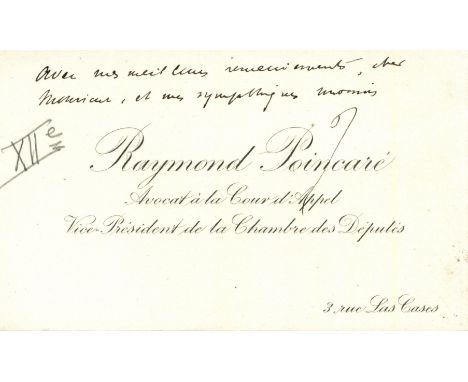 Avec mes meilleurs remerciements, cher
Monsieur, et mes sympathiques
XII
Raymond Poincaré
Avocat à la Cour d'Appel
Vice-Président de la Chambre des Députés
3, rue Las Cases